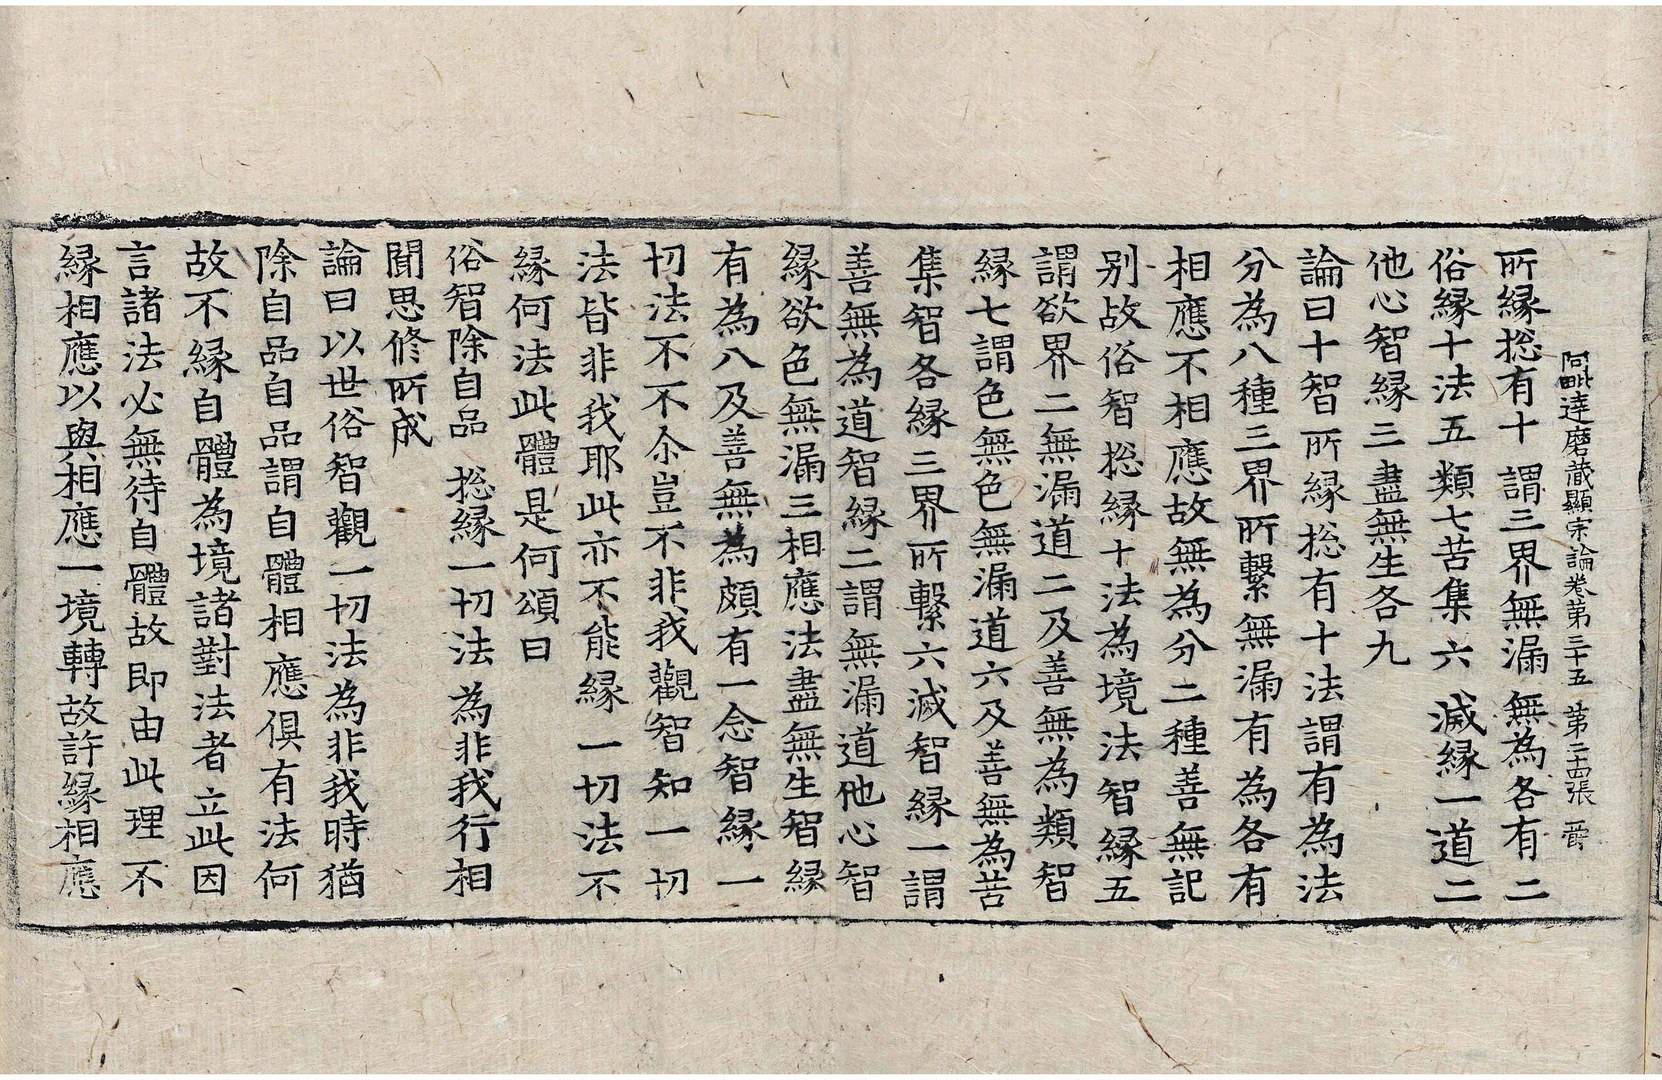 阿毗達磨藏顯宗論卷第三十五 第二十四張 爵
所緣捴有十 謂三界無漏 無為各有二
俗緣十法五 類七苦集六 滅緣一道二
他心智緣三盡無生各九
論曰十智所緣捴有十法謂有為法
分為八種三界所繫無漏有為各有
相應不相應故無為分二種善無記
別故俗智捴緣十法為境法智緣五
謂欲界二無漏道二及善無為類智
緣七謂色無色無漏道六及善無為苦
集智各緣三界所繫六滅智緣一謂
善無為道智緣二謂無漏道他心智
緣欲色無漏三相應法盡無生智緣
有為八及善無為頗有一念智緣一
切法不不尒豈不非我觀智知一切
法皆非我耶此亦不能緣一切法不
緣何法此體是何頌曰
俗智除自品 捴緣一切法 為非我行相
聞思修所成
論曰以世俗智觀一切法為非我時猶
除自品自品謂自體相應俱有法何
故不緣自體為境諸對法者立此因
言諸法必無待自體故即由此理不
緣相應以與相應一境轉故許緣相應